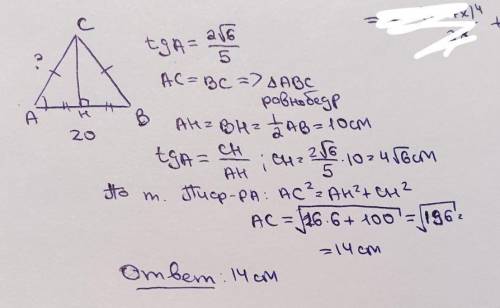 C
?
A H B
20
tgA = 2√6/5
AC = BC => △ABC
равнобедр
AH = BH = 1/2 AB = 10см
tgA = CH/AH ; CH = 2√6/5 · 10 = 4√6см
По т. Пиф-ра: AC² = AH² + CH²
AC = √16·6 + 100 = √196 =
= 14 см
Ответ: 14 см